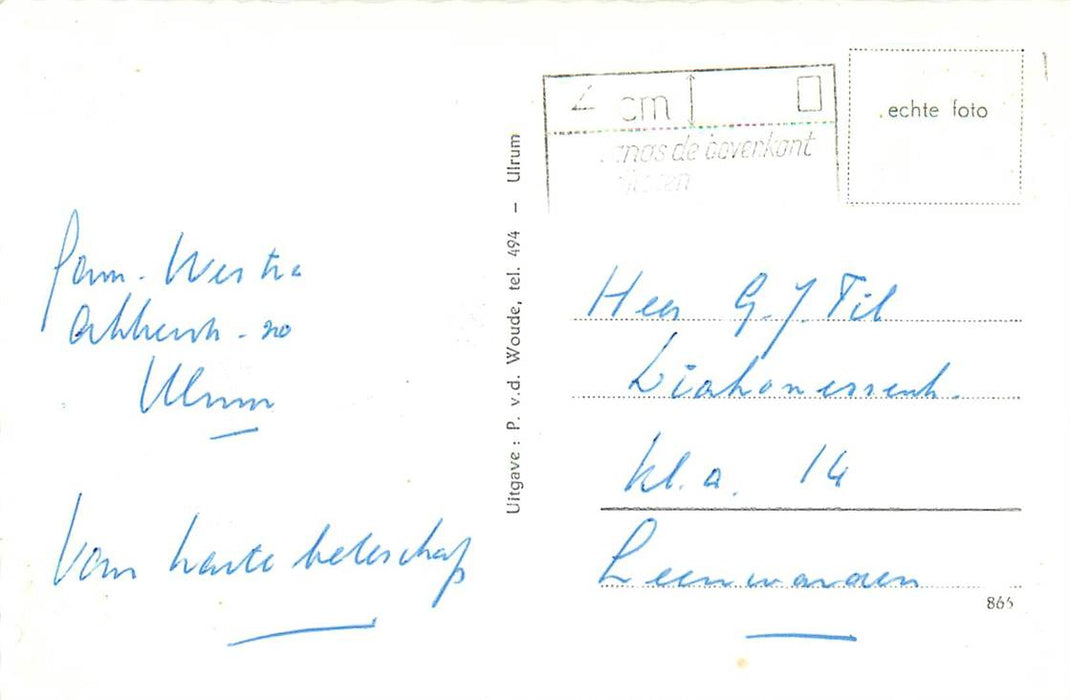 Fam. Westra
20
Ulrum
Van harte beterschap
Uitgave : P. v.d. Woude, tel. 494 – Ulrum
cm
de bovenkant
echte foto
Heer G. J. Til
Diakonessenh.
kl. a. 14
Leeuwarden
865